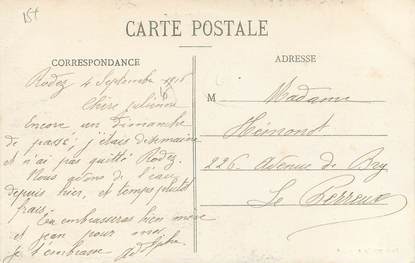 15+
CARTE POSTALE
CORRESPONDANCE
Rodez 4 Septembre 1916
Chère
Encore un dimanche
de passé, j'étais de semaine
et n'ai pas quitté Rodez.
Nous avons de l'eau
depuis hier, et temps plutôt
frais.
Tu embrasseras bien mère
et Jean pour moi,
je t'embrasse Adolphe
ADRESSE
M Madame
Hémonot
226 Avenue de Bry
Le Perreux